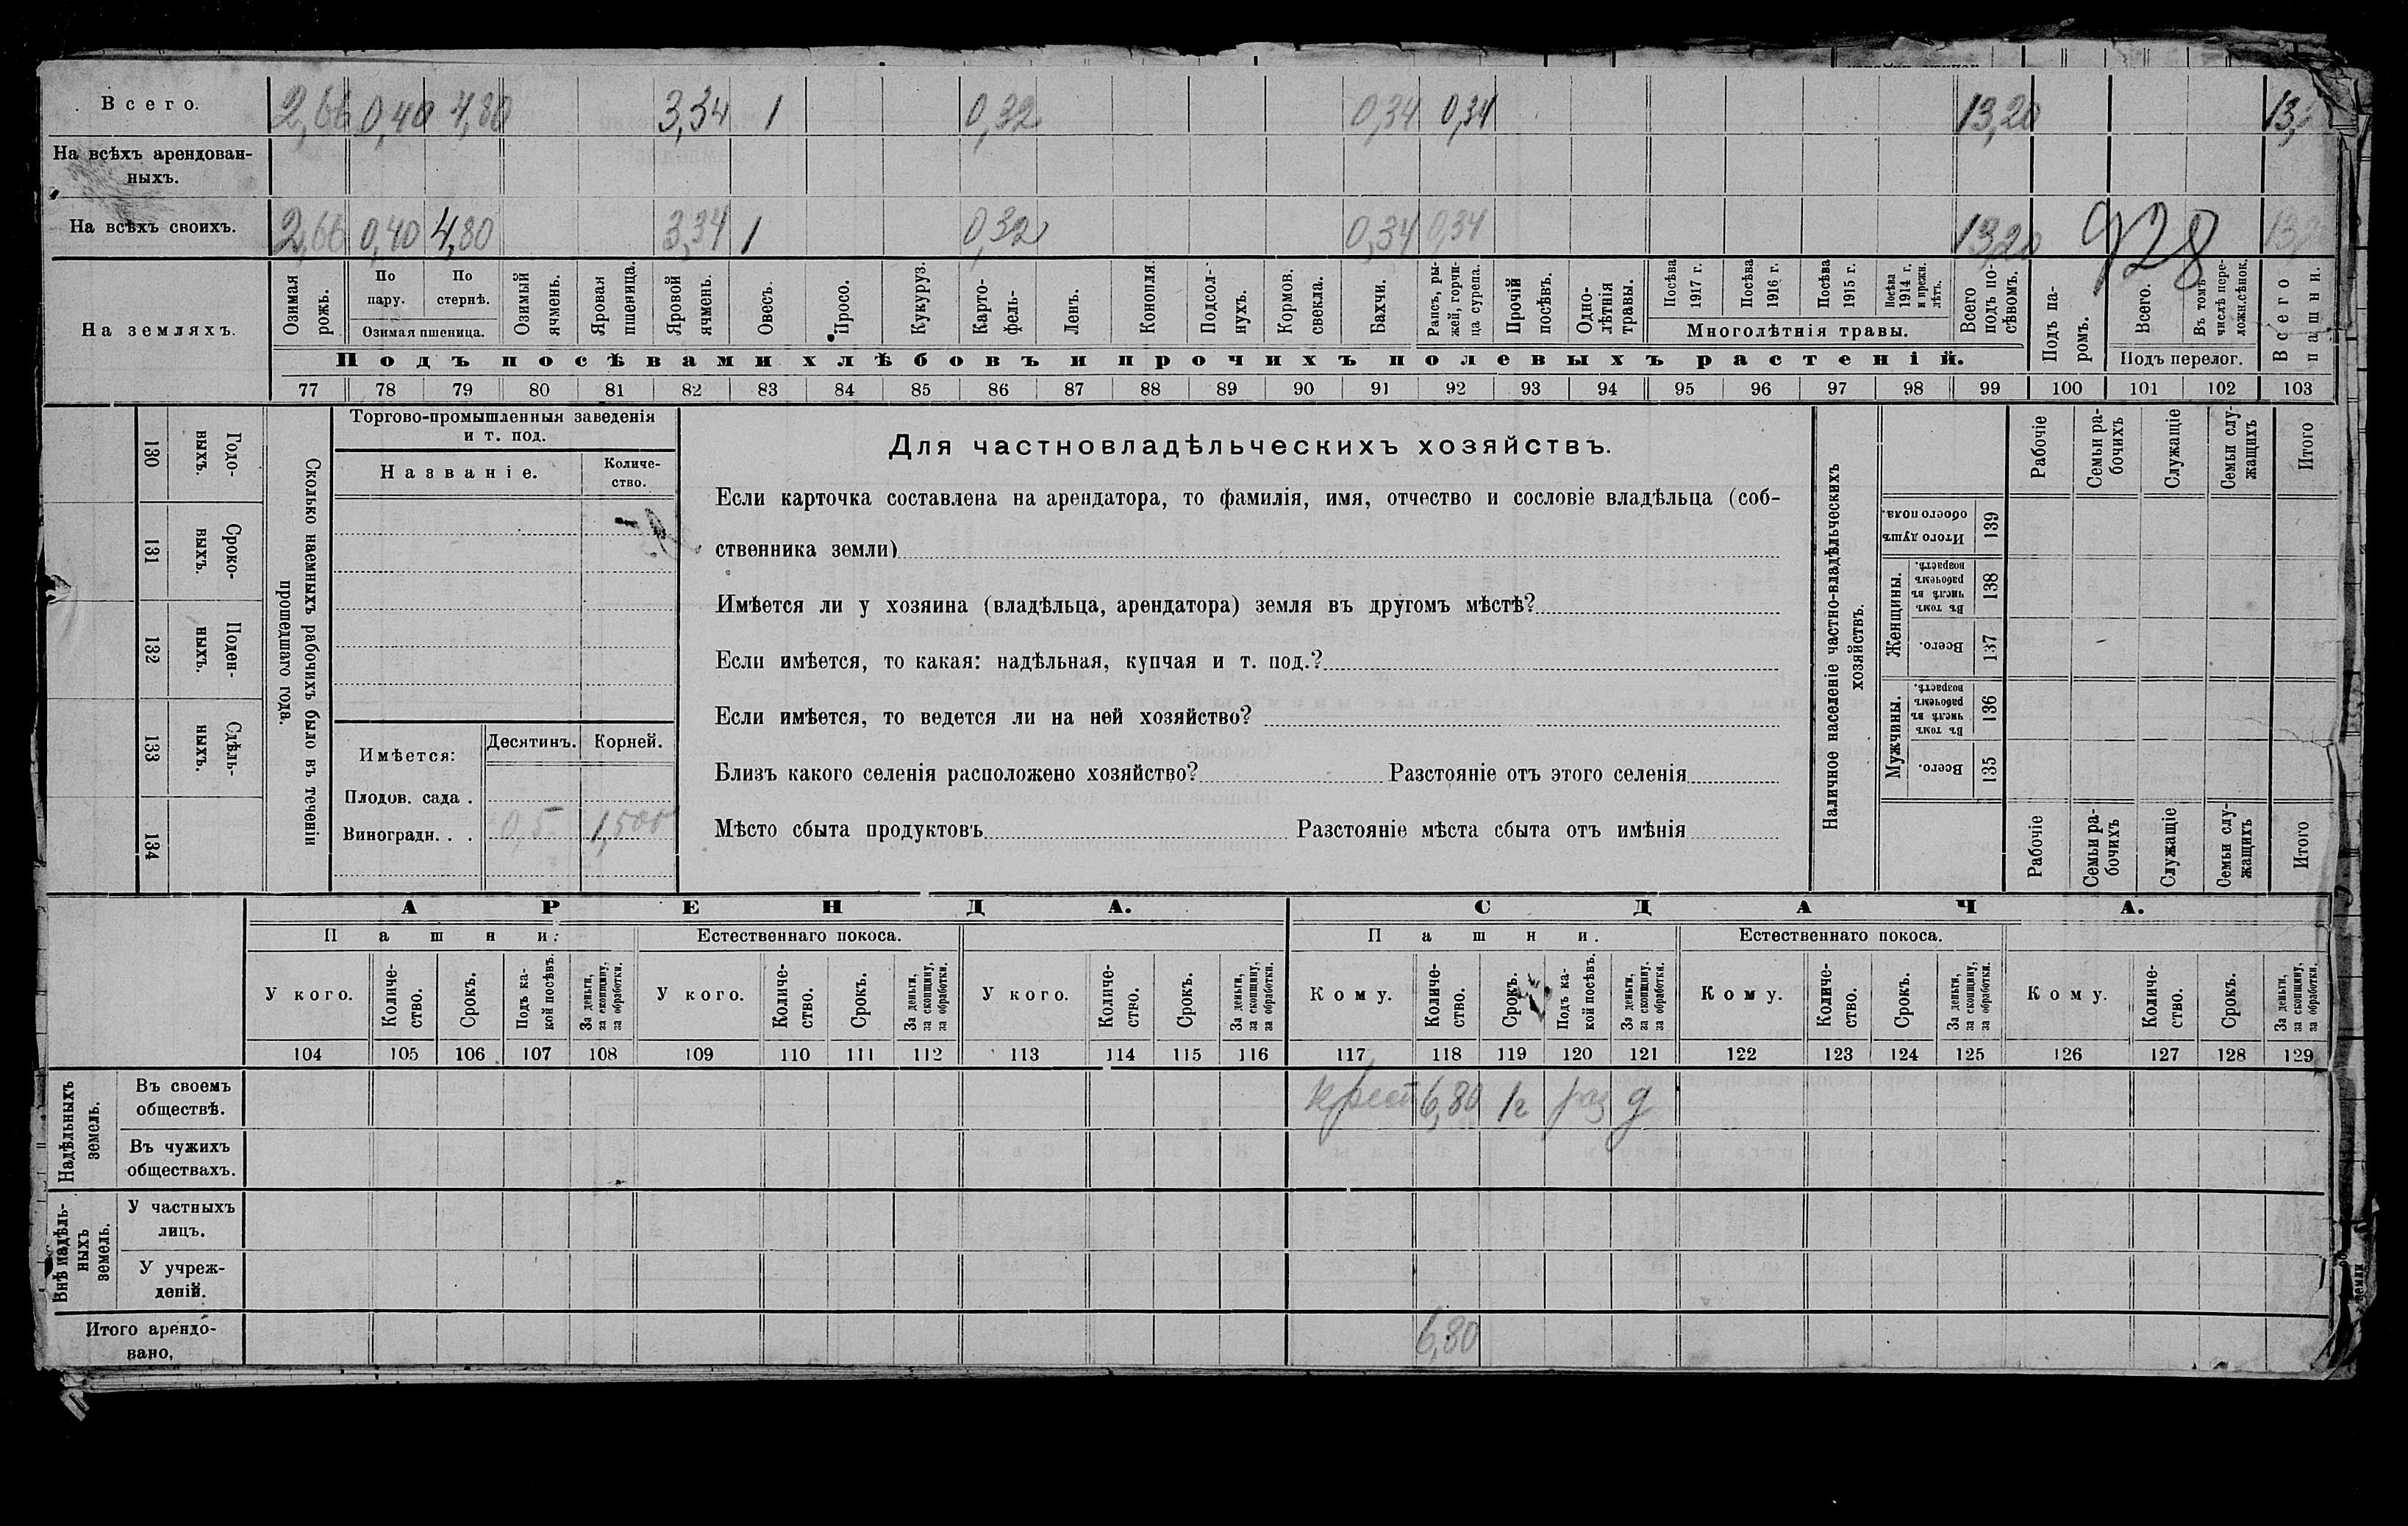 Всего. 2,66 0,40 4,80 3,34 1 0,32 0,34 0,34 13,20
На всѣхъ арендован-
ныхъ.
На всѣхъ своихъ. 2,66 0,40 4,80 3,34 1 0,32 0,34 0,34 13,20 928
На земляхъ.
Озимая рожь.
По пару.
По стернѣ.
Озимая пшеница.
Озимый ячмень.
Яровая пшеница.
Яровой ячмень.
Овесъ.
Просо.
Кукуруз.
Карто-
фель-
Ленъ.
Конопля.
Подсол-
нухъ.
Кормов. свекла.
Бахчи.
Рапсъ, ры-
жей, горчи-
ца сурепа.
Прочій посѣвъ.
Одно-
лѣтнія
травы.
Посѣва 1917 г.
Посѣва 1916 г.
Посѣва 1915 г.
Посѣва 1914 г. и прежн. лѣтъ.
Многолѣтнія травы.
Всего подъ по-
сѣвомъ.
Подъ па-
ромъ.
Всего.
Въ томъ числѣ пере-
ложн.сѣнок.
Подъ перелог.
Всего пашни.
Подъ посѣвами хлѣбовъ и прочихъ полевыхъ растеній.
77 78 79 80 81 82 83 84 85 86 87 88 89 90 91 92 93 94 95 96 97 98 99 100 101 102 103
130 Годо-
выхъ.
131 Сроко-
выхъ.
132 Поден-
ныхъ.
133 Сдѣль-
ныхъ.
134
Сколько наемныхъ рабочихъ было въ теченіи
прошедшаго года.
Торгово-промышленныя заведенія
и т. под.
Названіе.
Количе-
ство.
Имѣется:
Десятинъ. Корней.
Плодов. сада .
Виноградн. . . 0,5 1,500
Для частновладѣльческихъ хозяйствъ.
Если карточка составлена на арендатора, то фамилія, имя, отчество и сословіе владѣльца (соб-
ственника земли)
Имѣется ли у хозяина (владѣльца, арендатора) земля въ другомъ мѣстѣ?
Если имѣется, то какая: надѣльная, купчая и т. под.?
Если имѣется, то ведется ли на ней хозяйство?
Близъ какого селенія расположено хозяйство? Разстояніе отъ этого селенія
Мѣсто сбыта продуктовъ Разстояніе мѣста сбыта отъ имѣнія
Наличное населеніе частно-владѣльческихъ
хозяйствъ.
Рабочіе
Семьи ра-
бочихъ
Служащіе
Семьи слу-
жащихъ
Итого
Итого душъ
обоего пола.
139
Женщины.
Въ томъ числѣ въ рабочемъ возрастѣ.
138
Всего.
137
Мужчины.
Въ томъ числѣ въ рабочемъ возрастѣ.
136
Всего.
135
Рабочіе
Семьи ра-
бочихъ
Служащіе
Семьи слу-
жащихъ
Итого
АРЕНДА. СДАЧА.
Пашни. Естественнаго покоса. Пашни. Естественнаго покоса.
У кого.
Количе-
ство.
Срокъ.
Подъ ка-
кой посѣвъ.
За деньги,
за скопщину,
за обработки.
У кого.
Количе-
ство.
Срокъ.
За деньги,
за скопщину,
за обработки.
У кого.
Количе-
ство.
Срокъ.
За деньги,
за скопщину,
за обработки.
Кому.
Количе-
ство.
Срокъ.
Подъ ка-
кой посѣвъ.
За деньги,
за скопщину.
за обработки.
Кому.
Количе-
ство.
Срокъ.
За деньги,
за скопщину,
за обработки.
Кому.
Количе-
ство.
Срокъ.
За деньги,
за скопщину,
за обработки.
104 105 106 107 108 109 110 111 112 113 114 115 116 117 118 119 120 121 122 123 124 125 126 127 128 129
Надѣльныхъ
земель.
Въ своемъ
обществѣ. крест 6,80 1г раз д
Въ чужихъ
обществахъ.
Внѣ надѣль-
ныхъ
земель.
У частныхъ
лицъ.
У учреж-
деній.
Итого арендо-
вано, 6,80
земли